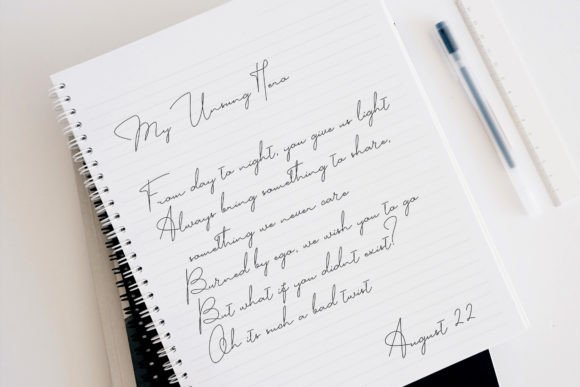 My Unsung Hero
From day to night, you give us light
Always bring something to share,
something we never care
Burned by ego, we wish you to go
But what if you didnt exist?
Oh its such a bad twist
August 22